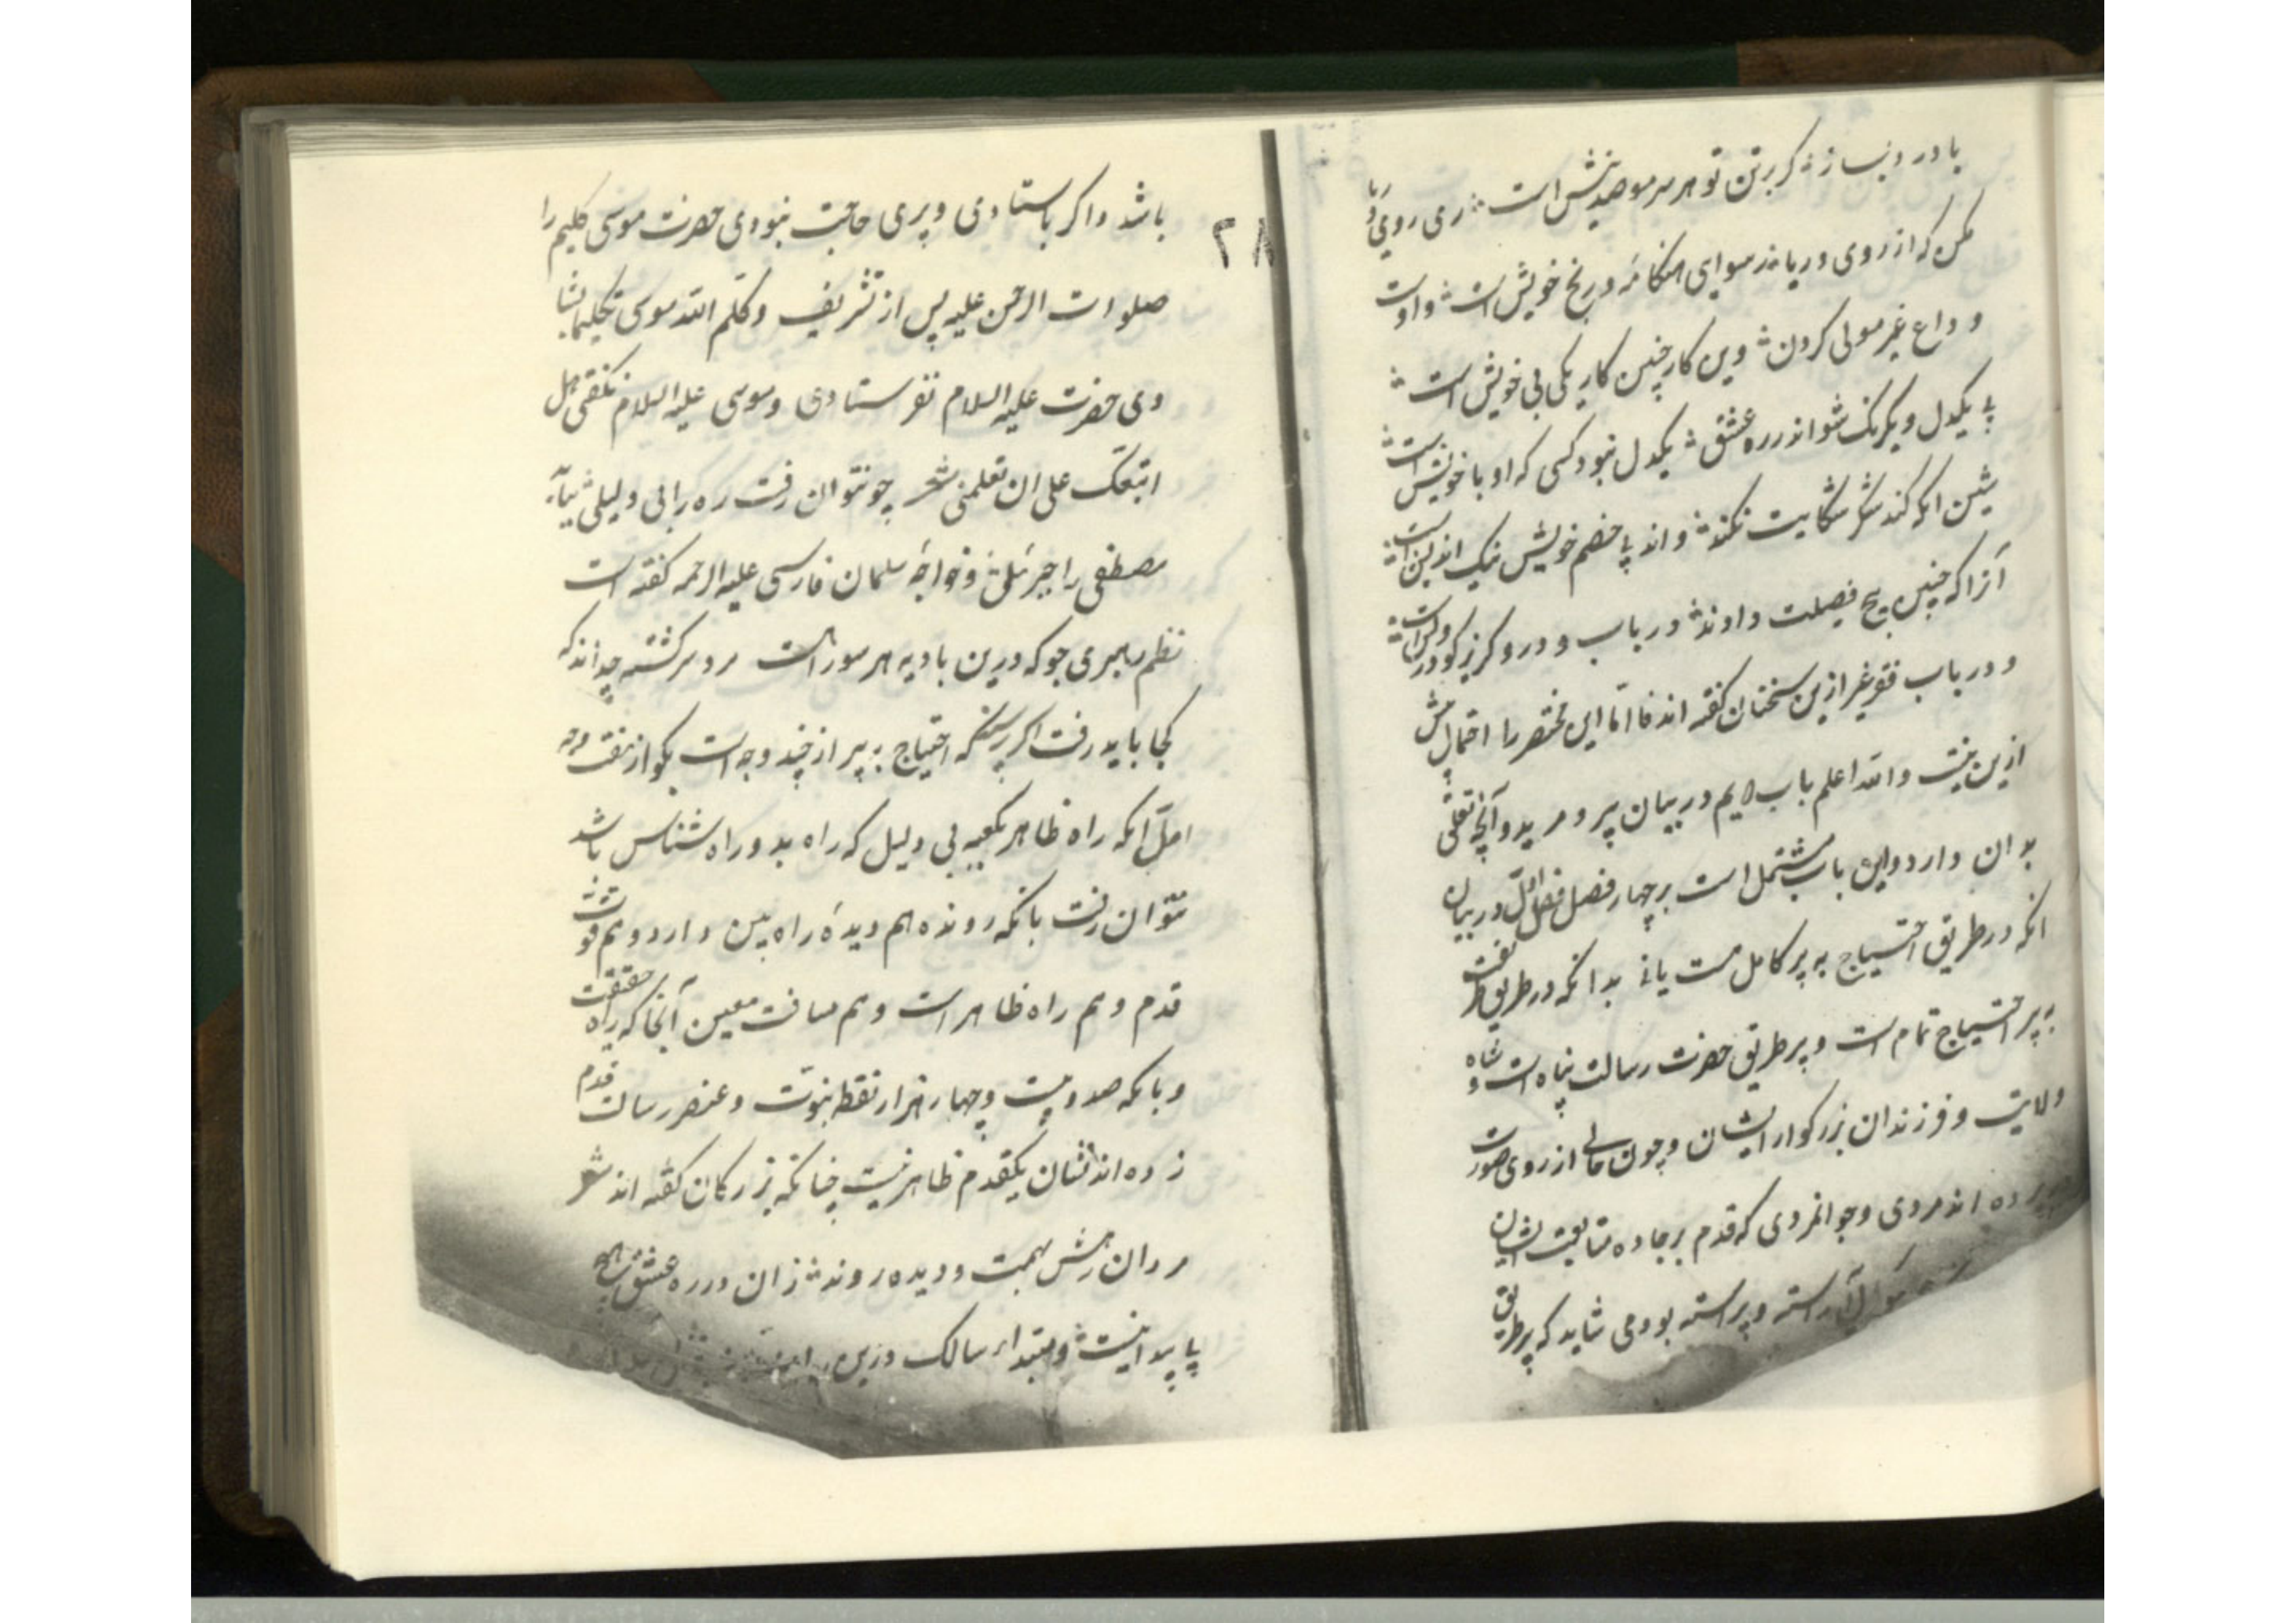 با درد بساز ار کر برتن تو هر سر مو صد نیش است ری روی ریا
مکن که از روی وریا در سوای هنکامه در نخ خویش است واوت
و داع غیر مولی کردن وین کار چنین کار یکی بی خویش است
پی یکدل ویکرنک شو اندر ره عشق یکدل نبود کسی که او با خویش است
شین انکه کند شکر شکایت نکند واند پا خصم خویش نیک اندیش است
آنرا که چنین پنج فصیلت دادند درباب و درو کریز کو درویش است
و درباب فقر غیر ازین سخنان کفته اند فاامّا این مختصر را احتمال بیش
ازین نیست والله اعلم باب دیم در بیان پیر و مرید وآنچه تعلق
بدان دارد واین باب مشتمل است بر چهار فصل فصل اوّل در بیان
انکه در طریق احتیاج به پیر کامل هست یا نه بدانکه در طریق طریقت
به پیر احتیاج تمام است و پیر طریق حضرت رسالت پناه است و شاه
ولایت و فرزندان بزرکوار ایشان وچون حالی از روی صورت
پرده اند مردی وجوانمردی که قدم برجاده متابعت ایشان
آراسته و پیراسته بود می شاید که پیر طریق
۲۸
باشد واکر باستادی وپیری حاجت نبودی حضرت موسی کلیم را
صلوات الرحمن علیه پس از تشریف وکلّم الله موسی تکلیما بشا
دی حضرت علیه السلام نفرستادی وموسی علیه السلام نکفتی هل
اتبعک علی ان تعلمنی شعر چو نتوان رفت ره را بی دلیلی بیآ
مصطفی را جبرئیلی وخواجهٔ سلمان فارسی علیه الرحمه کفته است
نظم رهبری جو که درین بادیه هر سو راهست مرد سرکشته چه داند که
کجا باید رفت اکر پرسند که احتیاج به پیر از چند وجه است بکو از هفت وجه
اوّل آنکه راه ظاهر بکعبه بی دلیل که راه بد وراه شناس باشد
نتوان رفت بانکه رونده هم دیدهٔ راه بین دارد وهم قوت
قدم وهم راه ظاهر است وهم مسافت معین آنجا که راه حقیقت
وبانکه صد وبیست وچهار هزار نقطه نبوّت وعنصر رسالت قدم
زده اند نشان یکقدم ظاهر نیست چنانکه بزرکان کفته اند شعر
مردان رهش بهمت ودیده روند زان در ره عشق هیچ
پا پیدا نیست ومبتداء سالک وزین راه